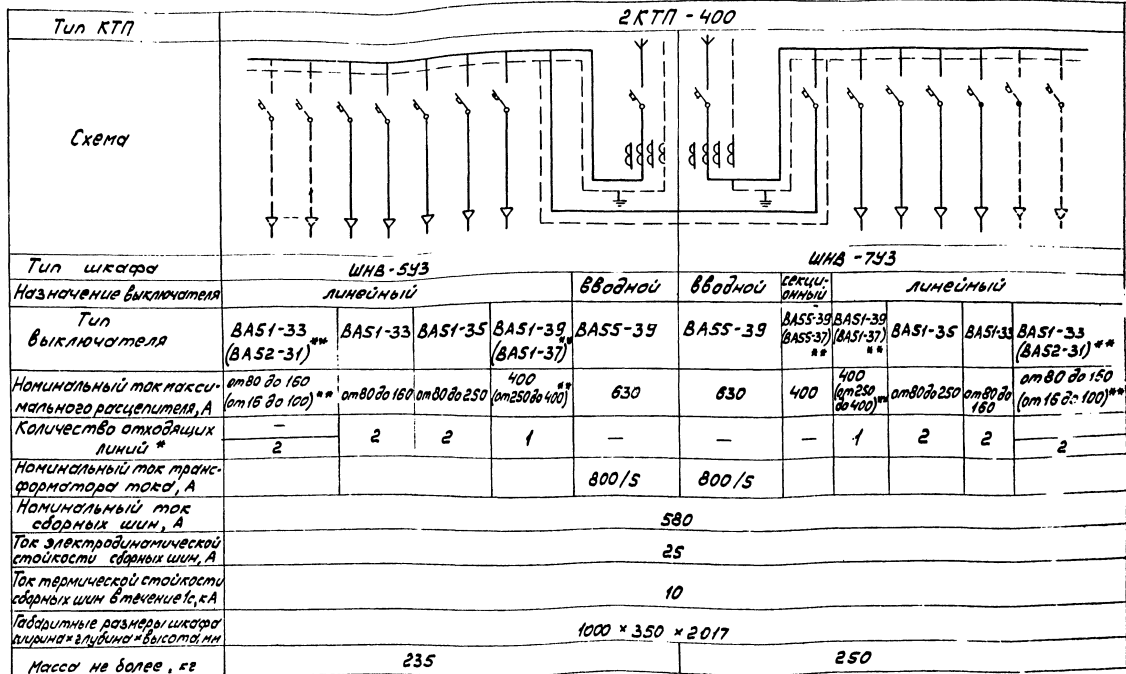 Тип КТП
2КТП - 400
Схема
Тип шкафа
ШНВ-5У3
ШНВ-7У3
Назначение выключателя
линейный
вводной
вводной
секци-
онный
линейный
Тип
выключателя
ВА51-33
(ВА52-31)**
ВА51-33
ВА51-35
ВА51-39
(ВА51-37)**
ВА55-39
ВА55-39
ВА55-39
(ВА55-37)
**
ВА51-39
(ВА51-37)
**
ВА51-35
ВА51-33
ВА51-33
(ВА52-31)**
Номинальный ток макси-
мального расцепителя, А
от 80 до 160
(от 16 до 100)**
от 80 до 160
от 80 до 250
400
(от 250 до 400)**
630
630
400
400
(от 250
до 400)**
от 80 до 250
от 80 до
160
от 80 до 150
(от 16 до 100)**
Количество отходящих
линий *
—
2
2
2
1
—
—
—
1
2
2
—
2
Номинальный ток транс-
форматора тока, А
800/5
800/5
Номинальный ток
сборных шин, А
580
Ток электродинамической
стойкости сборных шин, А
25
Ток термической стойкости
сборных шин в течение 1с, кА
10
Габаритные размеры шкафа
ширина×глубина×высота, мм
1000 × 350 × 2017
Масса не более, кг
235
250